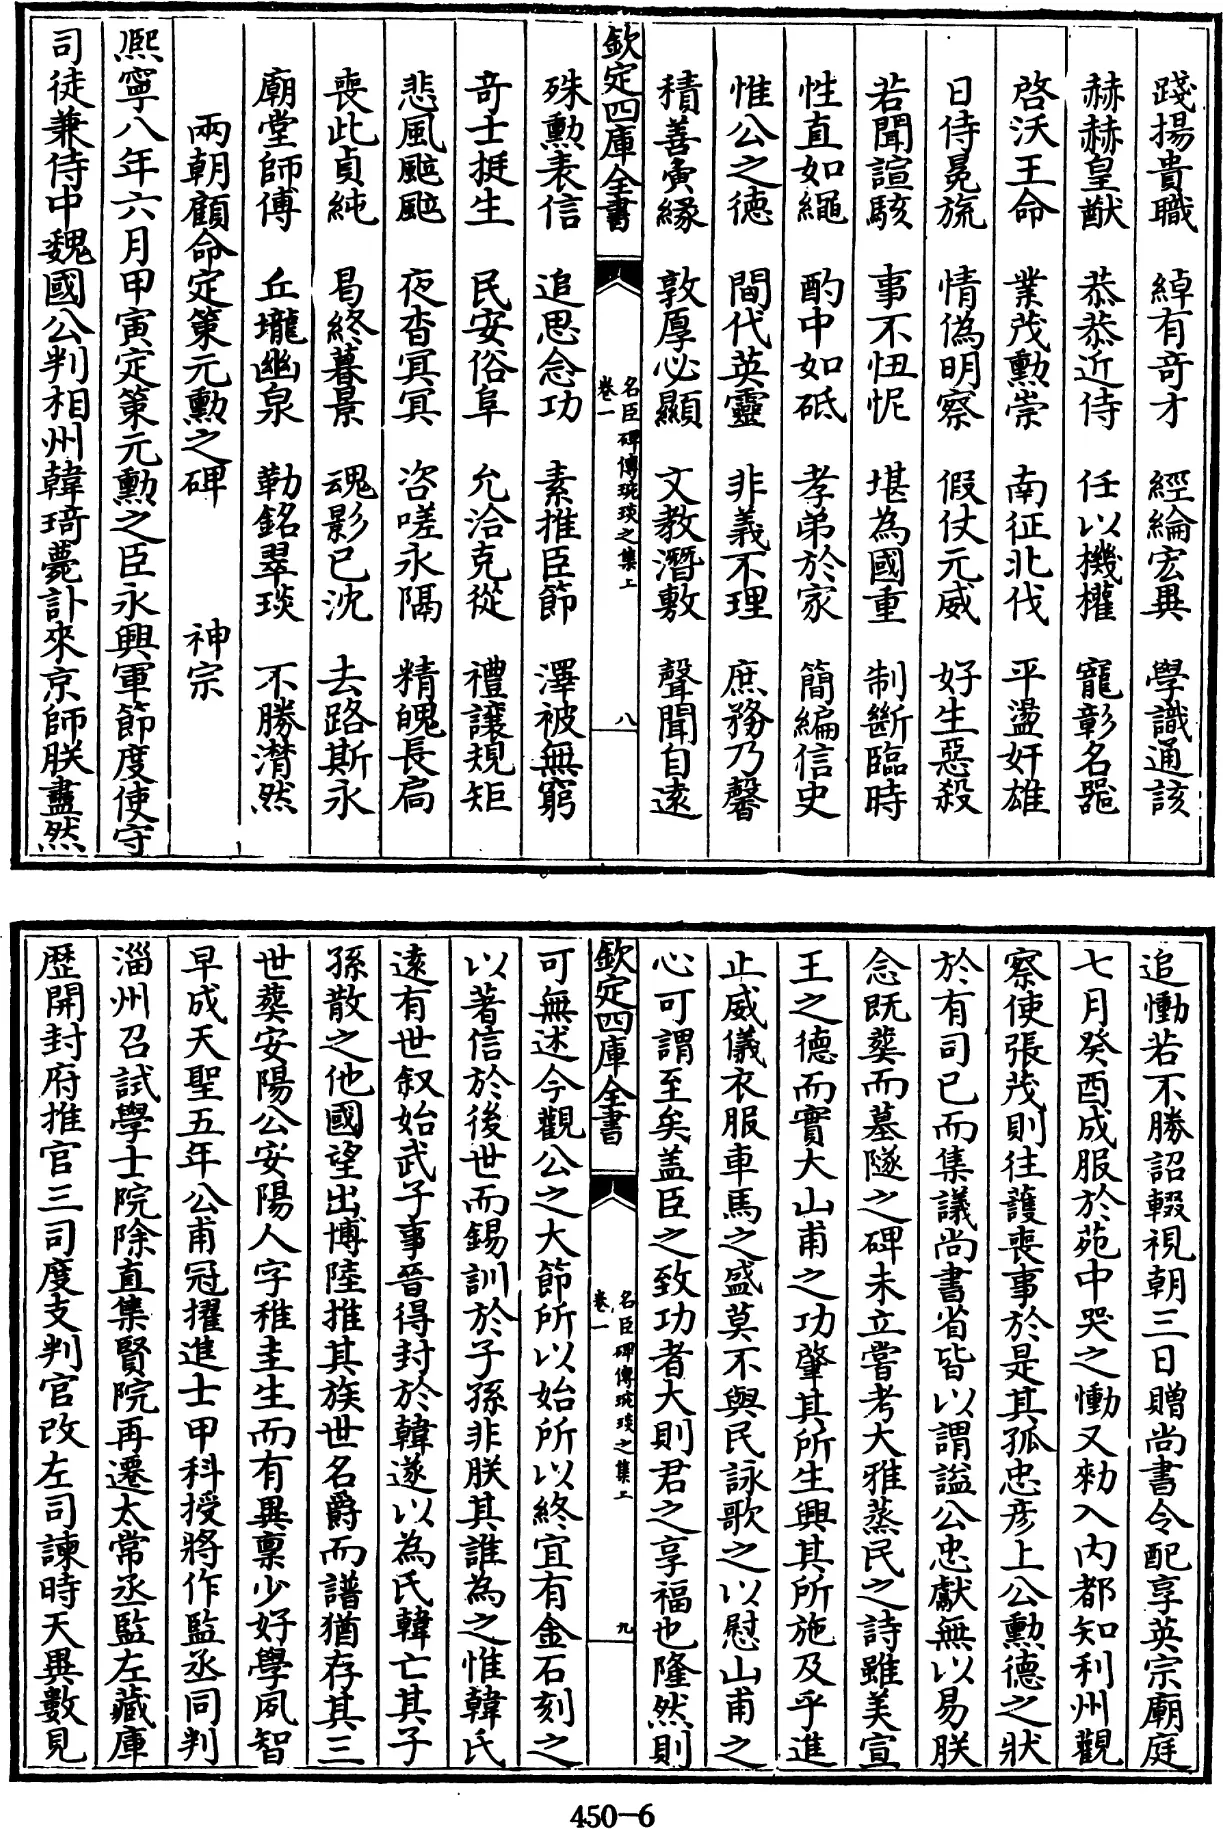 踐揚貴職　綽有竒才　經綸宏異　學識通該
赫赫皇猷　恭恭近侍　任以機權　寵彰名器
啓沃王命　業茂勲崇　南征北伐　平盪奸雄
日侍冕旒　情偽明察　假仗元威　好生惡殺
若聞諠駭　事不忸怩　堪為國重　制斷臨時
性直如繩　酌中如砥　孝弟於家　簡編信史
惟公之徳　間代英靈　非義不理　庶務乃馨
積善寅縁　敦厚必顯　文教潛敷　聲聞自遠
欽定四庫全書
名臣碑傳琬琰之集上
卷一
八
殊勲表信　追思念功　素推臣節　澤被無窮
竒士挺生　民安俗阜　允洽克從　禮讓規矩
悲風颭颭　夜杳冥冥　咨嗟永隔　精魄長扃
喪此貞純　曷終暮景　魂影已沈　去路斯永
廟堂師傅　丘壠幽泉　勒銘翠琰　不勝潸然
兩朝顧命定策元勲之碑　神宗
熈寧八年六月甲寅定策元勲之臣永興軍節度使守
司徒兼侍中魏國公判相州韓琦薨訃來京師朕盡然
追慟若不勝詔輟視朝三日贈尚書令配享英宗廟庭
七月癸酉成服於苑中哭之慟又勑入内都知利州觀
察使張茂則往䕶喪事於是其孤忠彦上公勲德之狀
於有司已而集議尚書省皆以謂諡公忠獻無以易朕
念既葬而墓隧之碑未立嘗考大雅蒸民之詩雖美宣
王之德而實大山甫之功肇其所生興其所施及乎進
止威儀衣服車馬之盛莫不與民詠歌之以慰山甫之
心可謂至矣盖臣之致功者大則君之享福也隆然則
欽定四庫全書
名臣碑傳琬琰之集上
卷一
九
可無述今觀公之大節所以始所以終宜有金石刻之
以著信於後世而錫訓於子孫非朕其誰為之惟韓氏
逺有世叙始武子事晉得封於韓遂以為氏韓亡其子
孫散之他國望出博陸推其族世名爵而譜猶存其三
世葬安陽公安陽人字稚圭生而有異禀少好學夙智
早成天聖五年公甫冠擢進士甲科授將作監丞同判
淄州召試學士院除直集賢院再遷太常丞監左藏庫
歴開封府推官三司度支判官改左司諫時天異數見
450-6